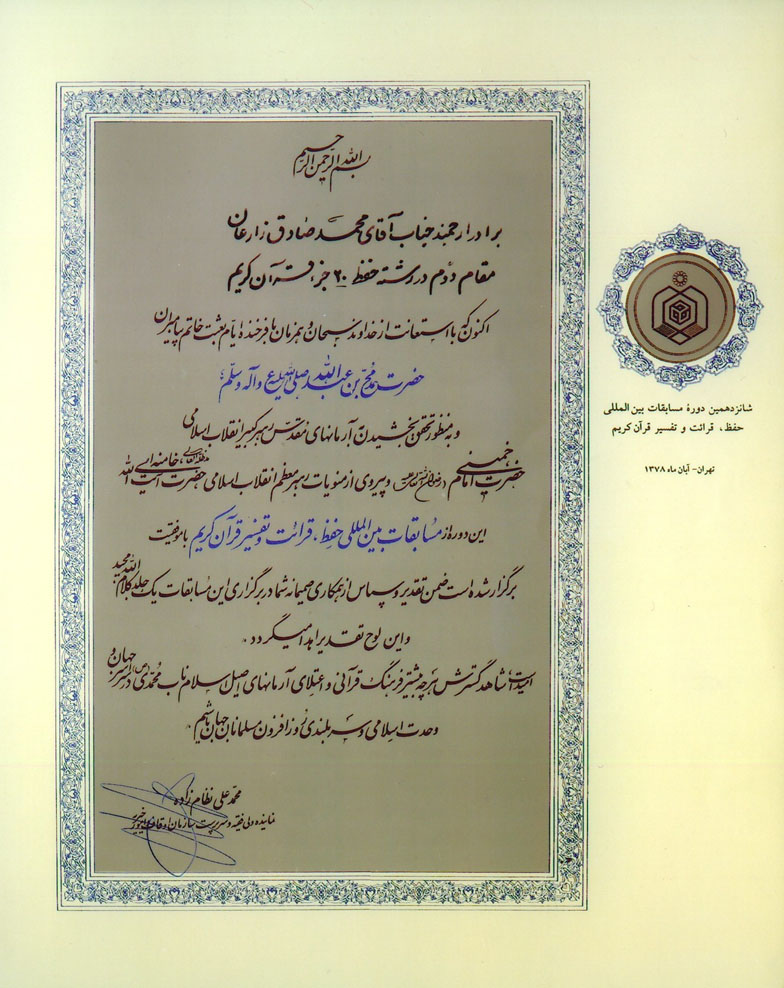 بسم الله الرحمن الرحیم
برادر ارجمند جناب آقای محمد صادق زارعان
مقام دوم در رشته حفظ ۲۰ جزء قرآن کریم
اکنون که با استعانت از خداوند سبحان و همزمان با فرخنده ایام مبعث خاتم پیامبران
حضرت محمد بن عبدالله صلی الله علیه و آله و سلم؛
و به منظور تحقق بخشیدن به آرمانهای مقدس رهبر کبیر انقلاب اسلامی
حضرت امام خمینی و پیروی از منویات رهبر معظم انقلاب اسلامی حضرت آیت الله خامنه ای
این دوره از مسابقات بین المللی حفظ، قرائت و تفسیر قرآن کریم با موفقیت
برگزار شده است ضمن تقدیر و سپاس از همکاری صمیمانه شما در برگزاری این مسابقات یک جلد کلام الله مجید
و این لوح تقدیر اهدا میگردد.
امید است شاهد گسترش هرچه بیشتر فرهنگ قرآنی و اعتلای آرمانهای اصیل اسلام ناب محمدی (ص) در سراسر جهان و
وحدت اسلامی و سربلندی روزافزون مسلمانان جهان باشیم.
محمد علی نظام زاده
نماینده ولی فقیه و سرپرست سازمان اوقاف و امور خیریه
شانزدهمین دورهٔ مسابقات بین المللی
حفظ، قرائت و تفسیر قرآن کریم
تهران - آبان ماه ۱۳۷۸